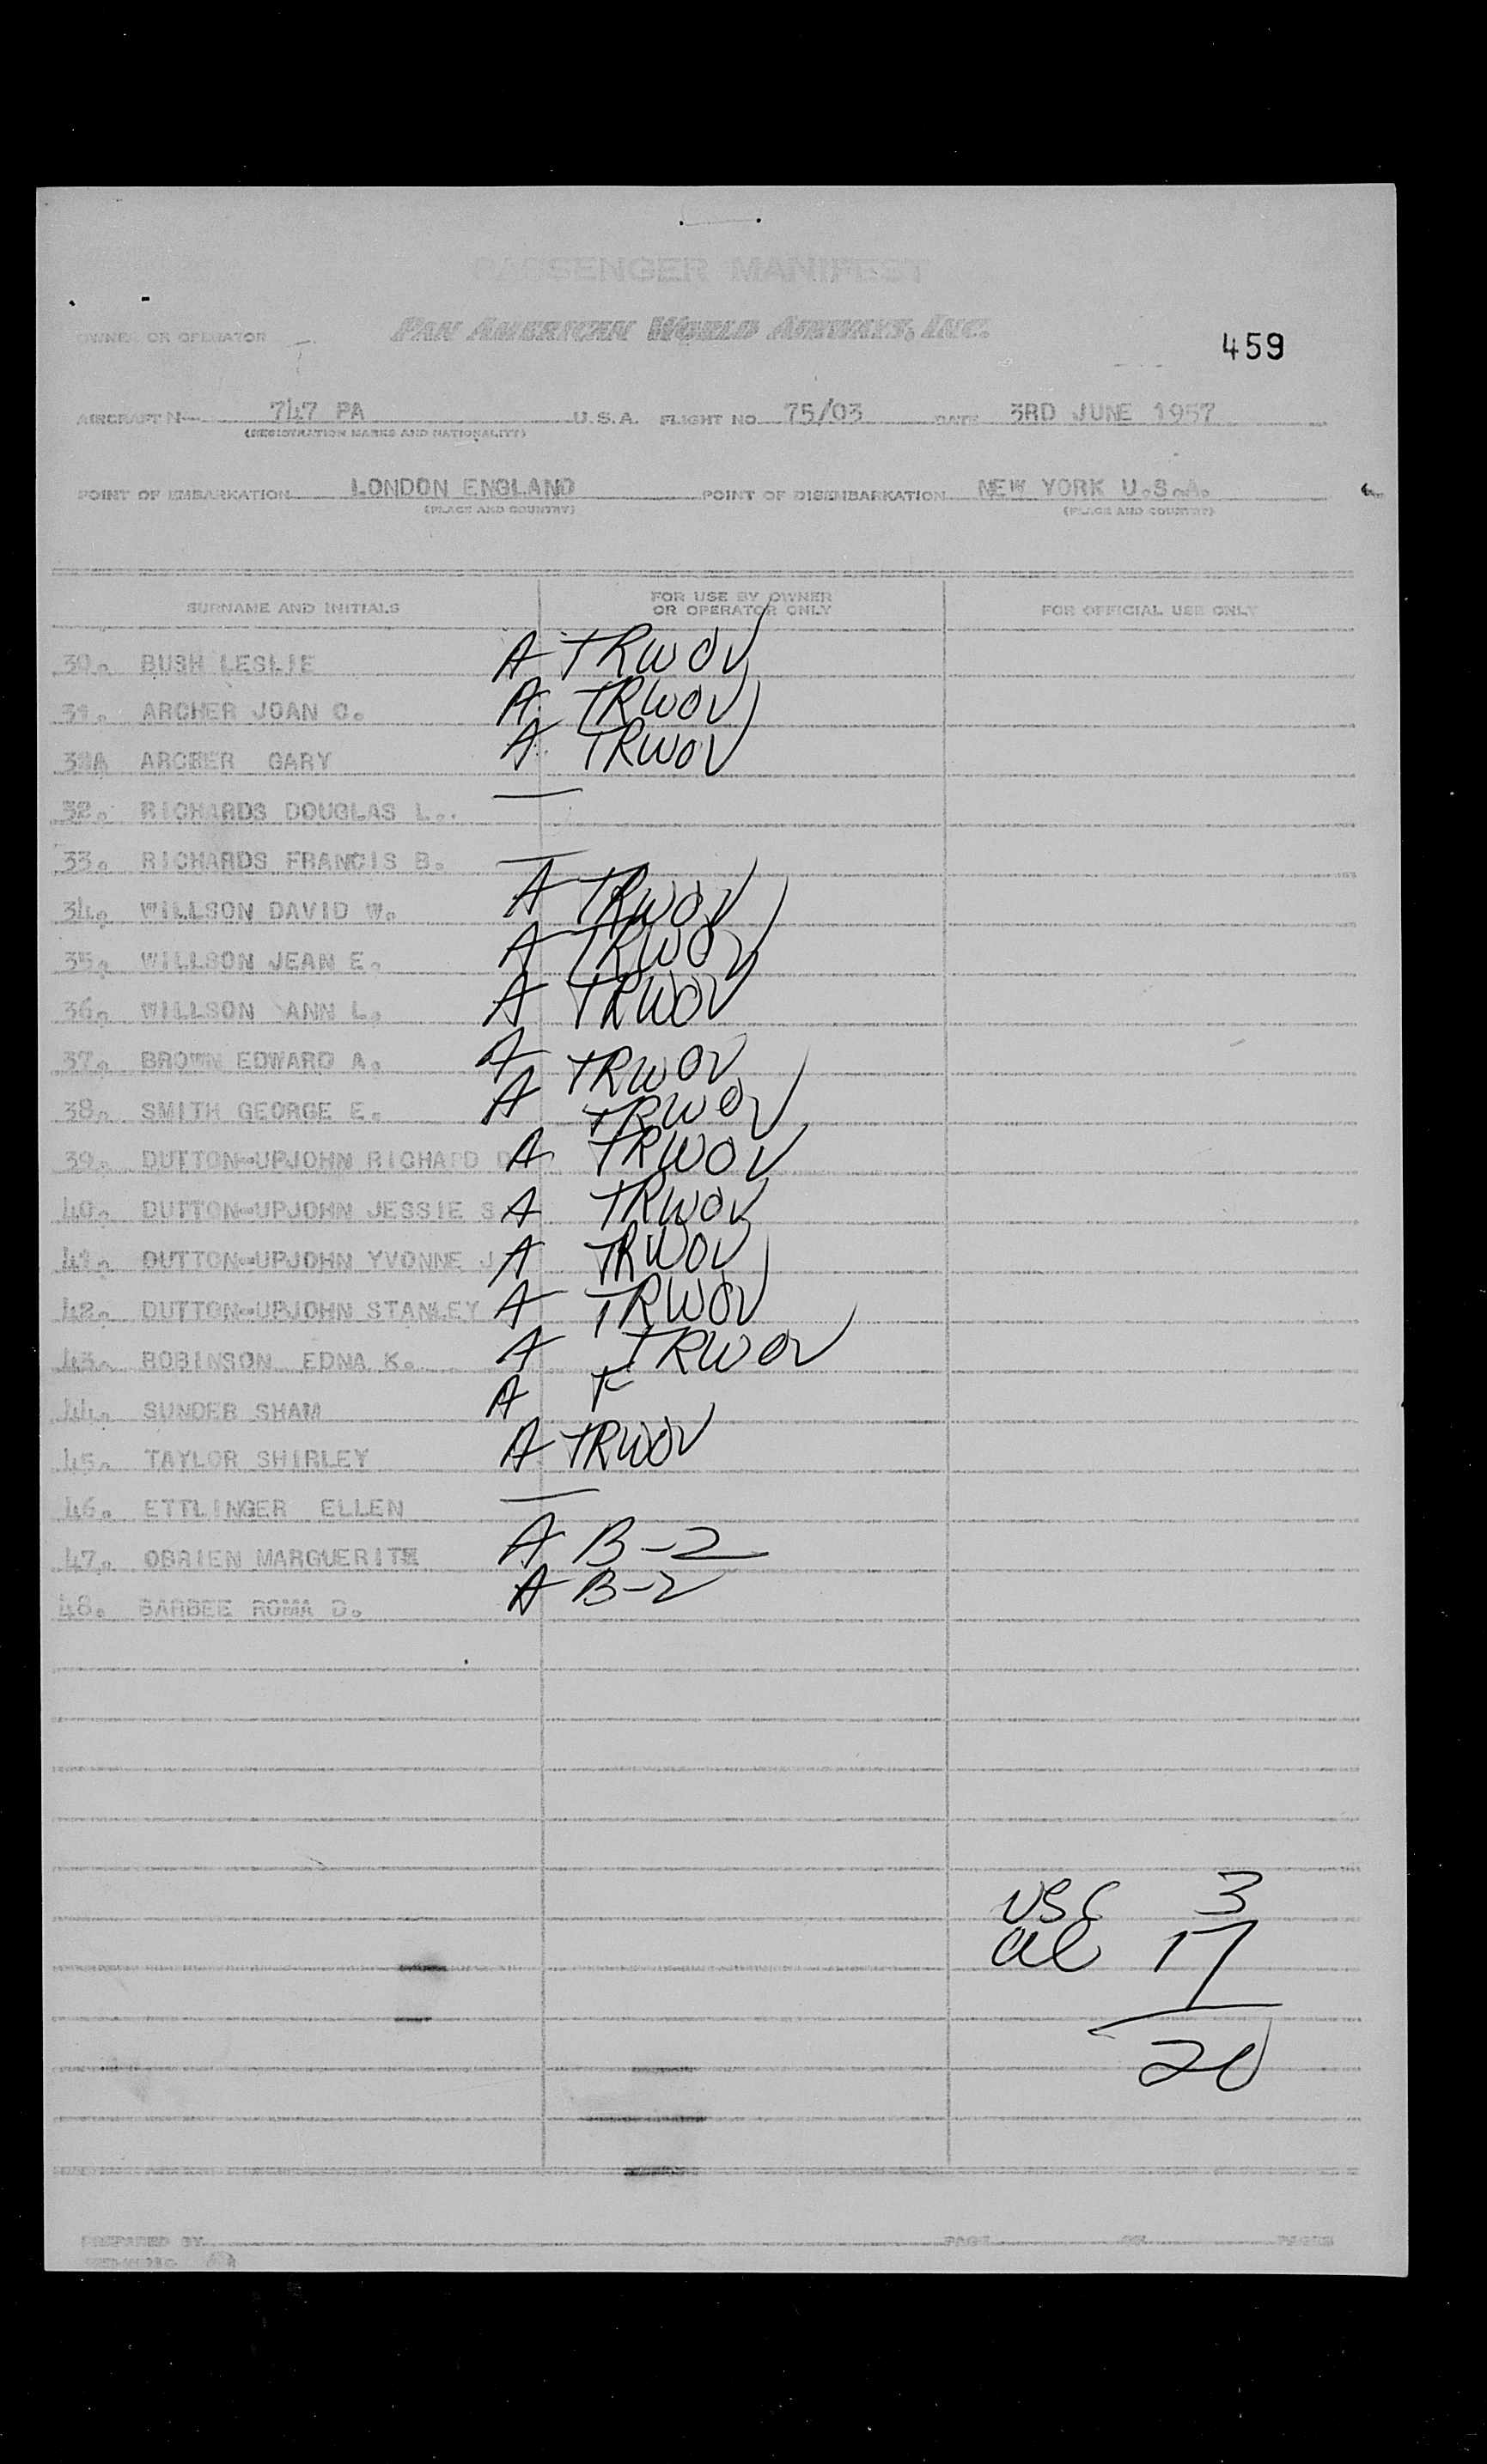 PASSENGER MANIFEST
OWNER OR OPERATOR PAN AMERICAN WORLD AIRWAYS, INC.
459
AIRCRAFT N 747 PA U.S.A. FLIGHT NO 75/03 DATE 3RD JUNE 1957
(REGISTRATION MARKS AND NATIONALITY)
POINT OF EMBARKATION LONDON ENGLAND POINT OF DISEMBARKATION NEW YORK U.S.A.
(PLACE AND COUNTRY) (PLACE AND COUNTRY)
SURNAME AND INITIALS FOR USE BY OWNER OR OPERATOR ONLY FOR OFFICIAL USE ONLY
30. BUSH LESLIE A TRWOV
31. ARCHER JOAN O. A TRWOV
31A ARCHER GARY A TRWOV
32. RICHARDS DOUGLAS L. —
33. RICHARDS FRANCIS B. —
34. WILLSON DAVID W. A TRWOV
35. WILLSON JEAN E. A TRWOV
36. WILLSON ANN L. A TRWOV
37. BROWN EDWARD A. A TRWOV
38. SMITH GEORGE E. A TRWOV
39. DUTTON-UPJOHN RICHARD D A TRWOV
40. DUTTON-UPJOHN JESSIE S A TRWOV
41. DUTTON-UPJOHN YVONNE J A TRWOV
42. DUTTON-UPJOHN STANLEY A TRWOV
43. ROBINSON EDNA K. A TRWOV
44. SUNDER SHAM A F
45. TAYLOR SHIRLEY A TRWOV
46. ETTLINGER ELLEN —
47. OBRIEN MARGUERITE A B-2
48. BARBEE ROMA D. A B-2
USC 3
al 17
20
PREPARED BY PAGE OF PAGES